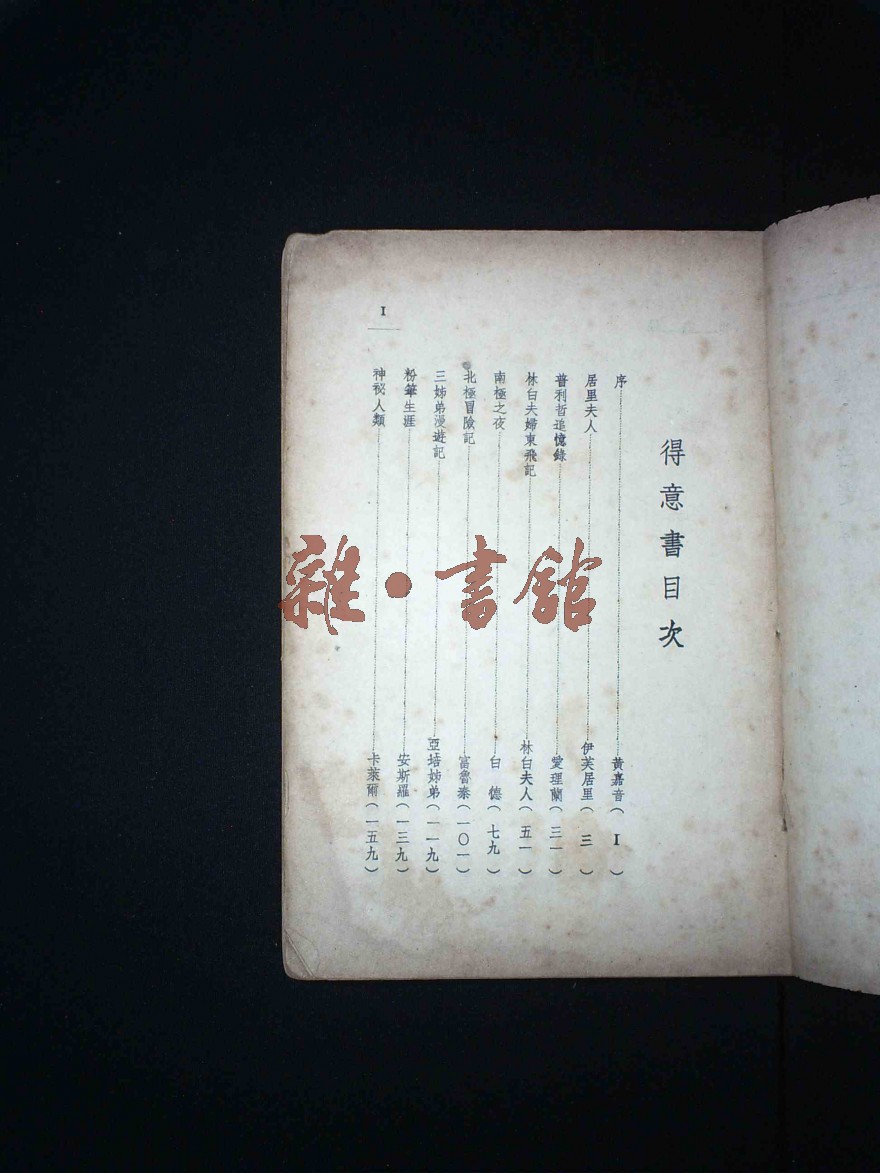 得意書目次
序 黃嘉音(I)
居里夫人 伊芙居里(三)
普利哲追憶錄 愛理蘭(三一)
林白夫婦東飛記 林白夫人(五一)
南極之夜 白德(七九)
北極冒險記 富魯泰(一〇一)
三姊弟漫遊記 亞培姊弟(一一九)
粉筆生涯 安斯羅(一三九)
神祕人類 卡萊爾(一五九)
I
雜·書館